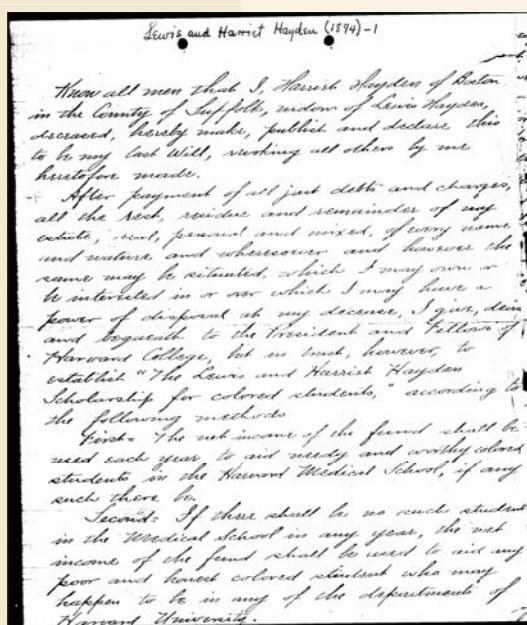 Lewis and Harriet Hayden (1894)-1
Know all men that I, Harriet Hayden of Boston
in the County of Suffolk, widow of Lewis Hayden,
deceased, hereby make, publish and declare this
to be my last Will, revoking all others by me
heretofore made.
After payment of all just debts and charges,
all the rest, residue and remainder of my
estate, real, personal and mixed, of every name
and nature and wheresoever and however the
same may be situated, which I may own or
be interested in or over which I may have a
power of disposal at my decease, I give, devise
and bequeath to the President and Fellows of
Harvard College, but in trust, however, to
establish "The Lewis and Harriet Hayden
Scholarship for colored students," according to
the following methods
First = The net income of the fund shall be
used each year to aid needy and worthy colored
students in the Harvard Medical School, if any
such there be.
Second = If there shall be no such student
in the Medical School in any year, the net
income of the fund shall be used to aid any
poor and honest colored student who may
happen to be in any of the departments of
Harvard University.